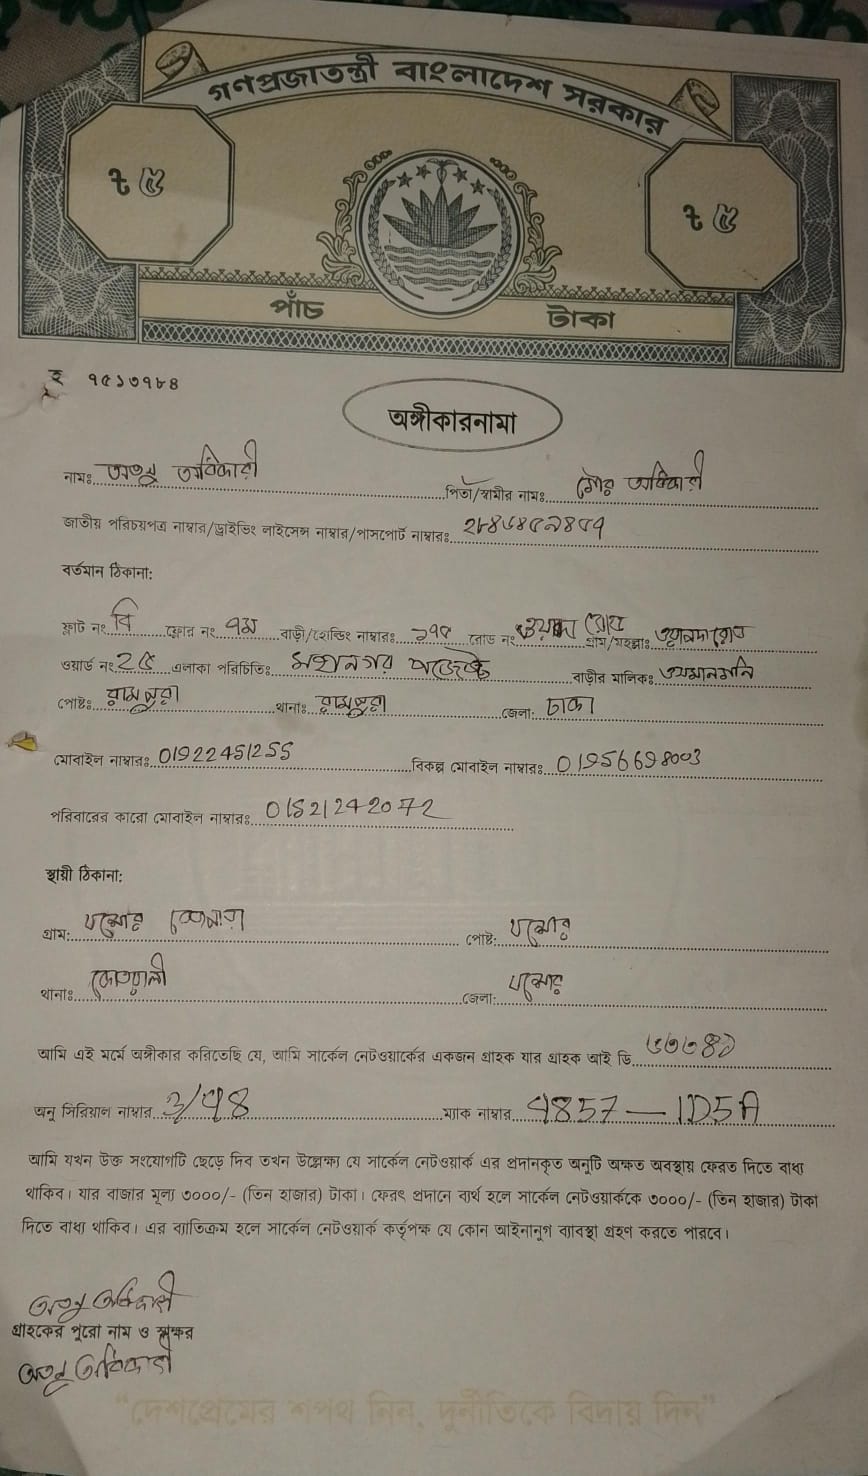 গণপ্রজাতন্ত্রী বাংলাদেশ সরকার
৳ ৫
৳ ৫
পাঁচ টাকা
৭৫১৩৭৮৪
অঙ্গীকারনামা
নামঃ অতনু অধিকারী পিতা/স্বামীর নামঃ গৌর অধিকারী
জাতীয় পরিচয়পত্র নাম্বার/ড্রাইভিং লাইসেন্স নাম্বার/পাসপোর্ট নাম্বারঃ
বর্তমান ঠিকানা:
ফ্লাট নং বি ফ্লোর নং ৭ম বাড়ী/হোল্ডিং নাম্বারঃ রোড নং রোড গ্রাম/মহল্লাঃ
ওয়ার্ড নং এলাকা পরিচিতিঃ মহানগর প্রজেক্ট বাড়ীর মালিকঃ
পোষ্টঃ রামপুরা থানাঃ রামপুরা জেলা: ঢাকা
মোবাইল নাম্বারঃ 01922451255 বিকল্প মোবাইল নাম্বারঃ 01956698003
পরিবারের কারো মোবাইল নাম্বারঃ 01521242072
স্থায়ী ঠিকানা:
গ্রাম: যশোর পোষ্ট: যশোর
থানাঃ কোতয়ালী জেলা: যশোর
আমি এই মর্মে অঙ্গীকার করিতেছি যে, আমি সার্কেল নেটওয়ার্কের একজন গ্রাহক যার গ্রাহক আই ডি
অনু সিরিয়াল নাম্বার ম্যাক নাম্বার 4857 — 1D5A
আমি যখন উক্ত সংযোগটি ছেড়ে দিব তখন উল্লেক্ষ্য যে সার্কেল নেটওয়ার্ক এর প্রদানকৃত অনুটি অক্ষত অবস্থায় ফেরত দিতে বাধ্য
থাকিব। যার বাজার মূল্য ৩০০০/- (তিন হাজার) টাকা। ফেরৎ প্রদানে ব্যর্থ হলে সার্কেল নেটওয়ার্ককে ৩০০০/- (তিন হাজার) টাকা
দিতে বাধ্য থাকিব। এর ব্যতিক্রম হলে সার্কেল নেটওয়ার্ক কর্তৃপক্ষ যে কোন আইনানুগ ব্যাবস্থা গ্রহণ করতে পারবে।
অতনু অধিকারী
গ্রাহকের পুরো নাম ও স্বাক্ষর
অতনু অধিকারী
“দেশপ্রেমের শপথ নিন, দুর্নীতিকে বিদায় দিন”